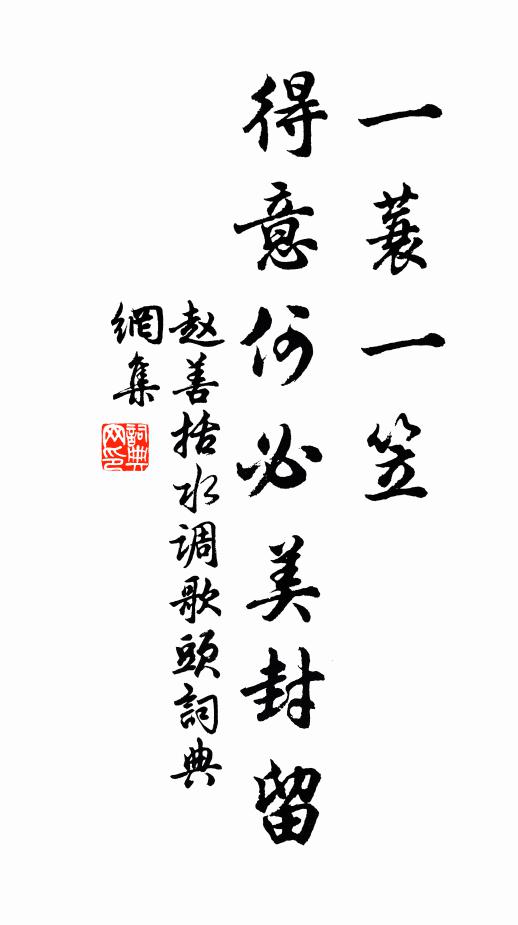 一蓑一笠
得意何必美封留
赵善括水调歌頭詞典
網集
詞典網印